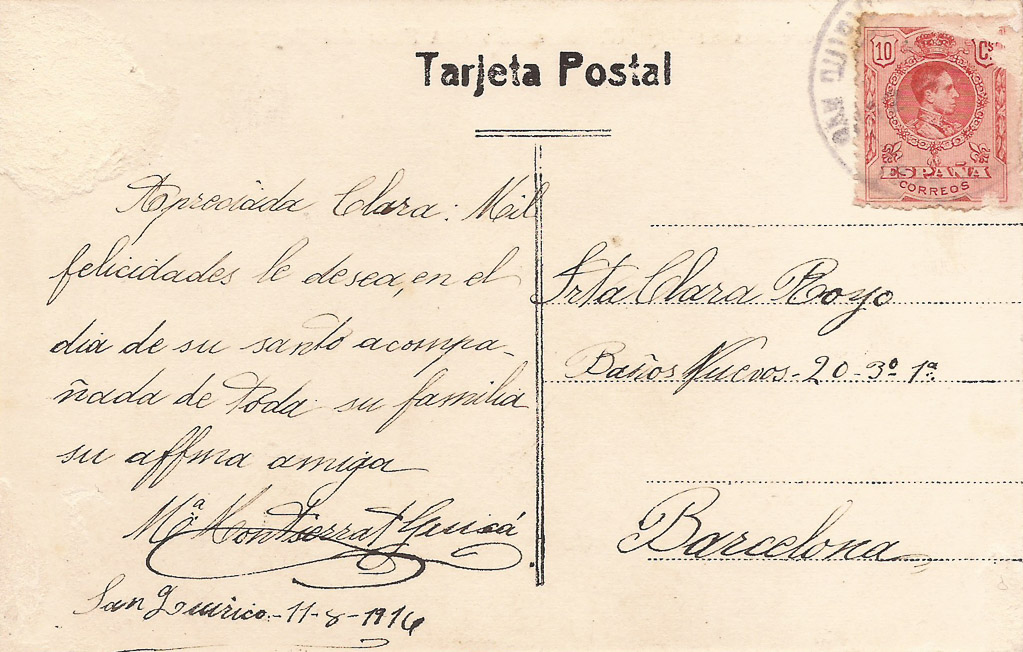 Tarjeta Postal
10 Cs
ESPAÑA
CORREOS
Apreciada Clara: Mil
felicidades le desea, en el
dia de su santo acompa-
ñada de toda su familia
su affma amiga
Mª Montserrat
San Quirico-11-8-1916
Srta Clara Royo
Baños Nuevos-20-3º 1ª
Barcelona